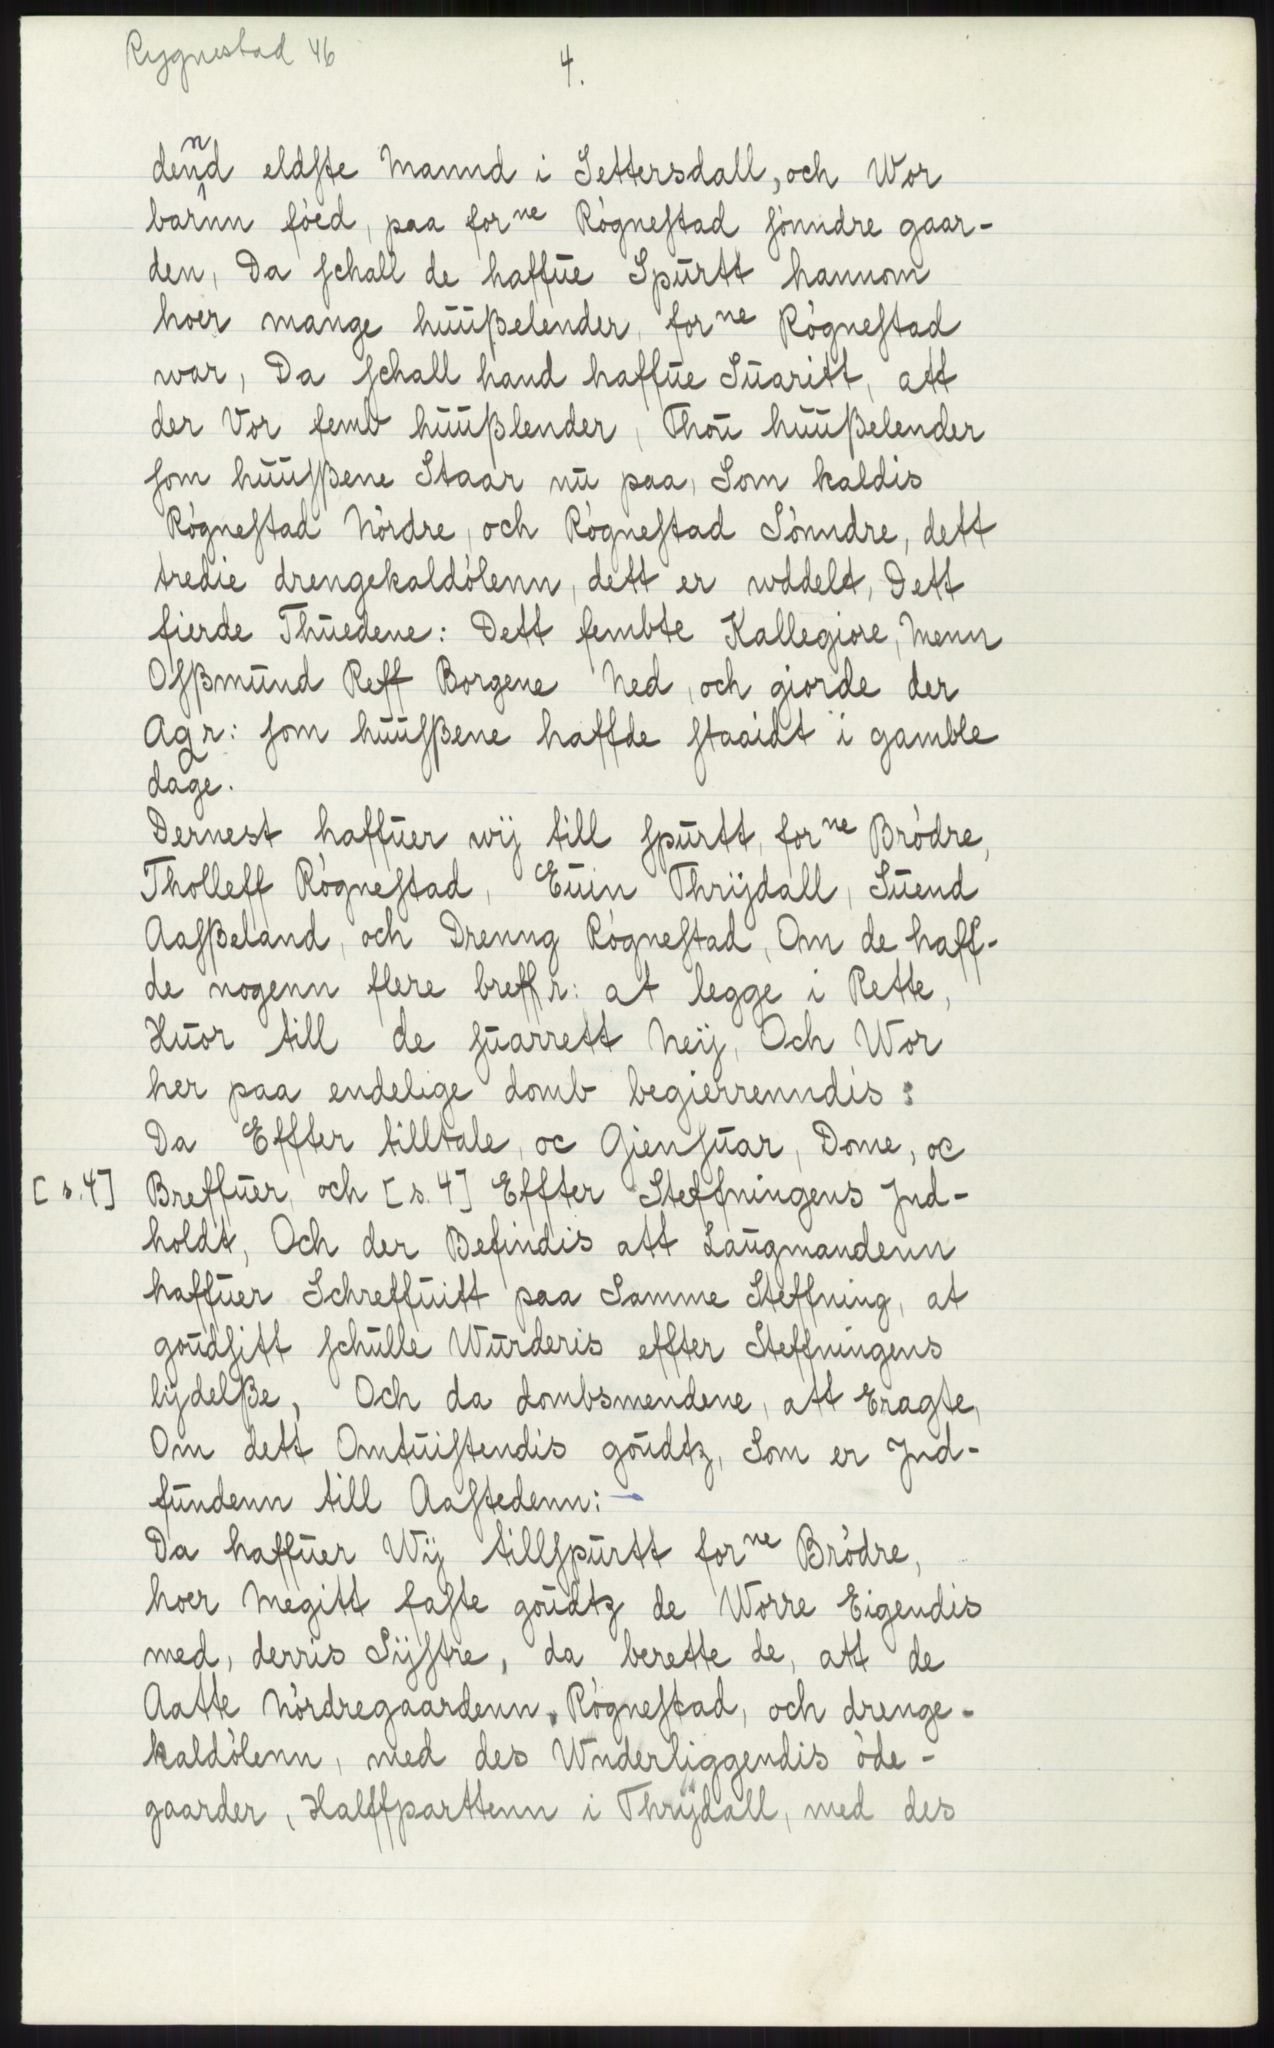 Rygnestad 46
4.
dennd eldste Mannd i Settersdall, och Wor
barnn fóed, paa forne Rógnestad sónndre gaar-
den, Da schall de haffue Spurtt hannom
hoer mange huußelender, forne Rógnestad
war, Da schall hand haffue Suaritt, att
der Vor femb huußlender, Thou huußelender
som huusßene Staar nu paa, Som kaldis
Rógnestad Nórdre, och Rógnestad Sónndre, dett
tredie drengekaldólenn, dett er wddelt, Dett
fierde Thuedene: Dett fembte Kallegiore, Menn
Osßmund Reff Borgene Ned, och giorde der
Agr: som huusßene haffde staaidt i gamble
dage.
Dernest haffuer wij till spurtt, forne Bródre,
Tholleff Rógnestad, Euin Thrijdall, Suend
Aasßeland, och Drenng Rógnestad, Om de haff-
de nogenn flere breffr: at legge i Rette,
Huor till de suarrett Neij, Och Wor
her paa endelige domb begierrenndis:
Da Effter tilltale, oc Giensuar, Dome, oc
[s.4] Breffuer, och [s.4] Effter Steffningens Jnd-
holdt, Och der Befindis att Laugmandenn
haffuer Schreffuitt paa Samme Steffning, at
goudsitt schulle Wurderis effter Steffningens
lijdelße, Och da dombsmendene, att Eragte,
Om dett Omtuistendis goudtz, Som er Jnd-
fundenn till Aastedenn:
Da haffuer Wij tillspurtt forne Bródre,
hoer Megitt faste goudtz de Worre Eigendis
med, derris Sijstre, da berette de, att de
Aatte Nórdregaardenn, Rógnestad, och drenge-
kaldólenn, med des Wnderliggendis óde-
gaarder, Halffparttenn i Thrijdall, med des